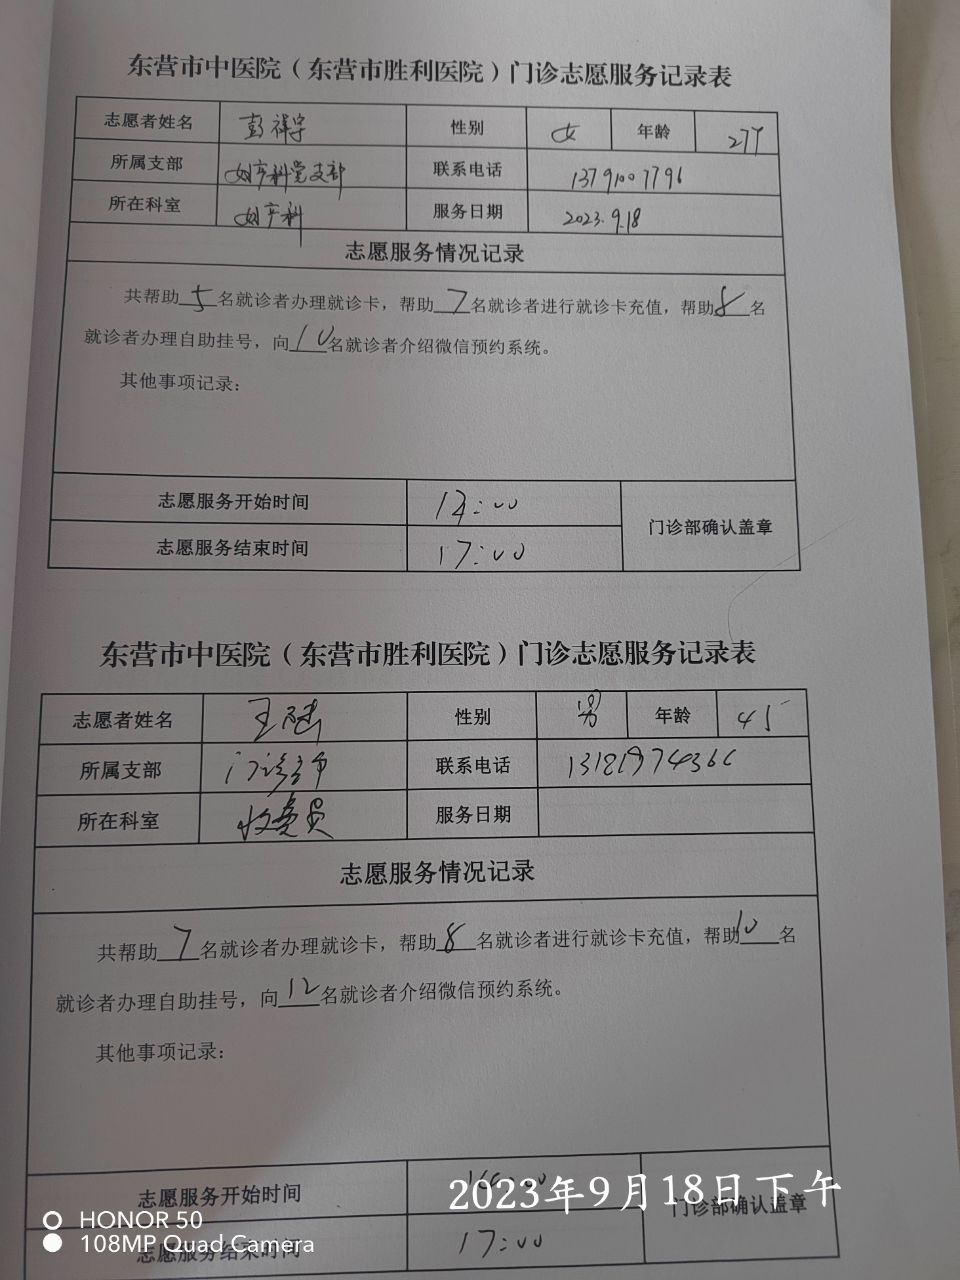 东营市中医院（东营市胜利医院）门诊志愿服务记录表
志愿者姓名 彭祥宇 性别 女 年龄 27岁
所属支部 妇产科党支部 联系电话 13791007796
所在科室 妇产科 服务日期 2023.9.18
志愿服务情况记录
共帮助5名就诊者办理就诊卡，帮助7名就诊者进行就诊卡充值，帮助8名
就诊者办理自助挂号，向10名就诊者介绍微信预约系统。
其他事项记录：
志愿服务开始时间 门诊部确认盖章
志愿服务结束时间 17:00
东营市中医院（东营市胜利医院）门诊志愿服务记录表
志愿者姓名 王 性别 男 年龄 45
所属支部 门诊部 联系电话
所在科室 收费员 服务日期
志愿服务情况记录
共帮助7名就诊者办理就诊卡，帮助8名就诊者进行就诊卡充值，帮助10名
就诊者办理自助挂号，向12名就诊者介绍微信预约系统。
其他事项记录：
志愿服务开始时间 门诊部确认盖章
2023年9月18日下午
志愿服务结束时间 17:00
HONOR 50
108MP Quad Camera